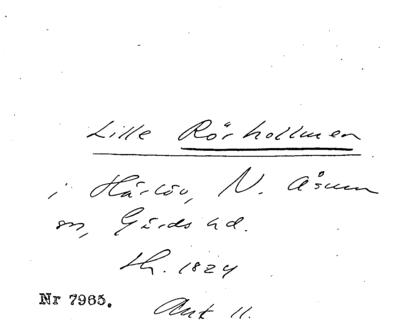 Lille Rörhollmen
i Härlöv, N. Åsum
sn, Gärds hd.
Lh. 1824
Nr 7965.
Akt 11.